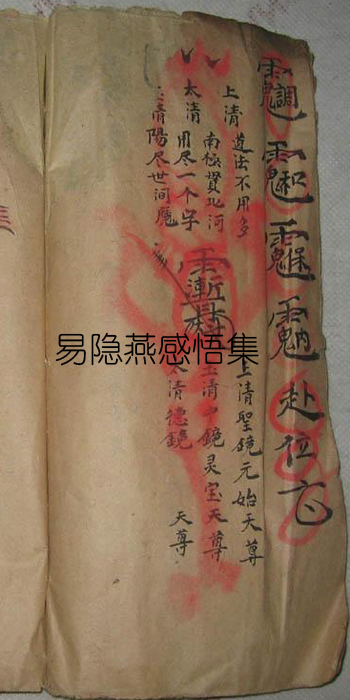 赴位
上清 道法不用多
南極贯北河
太清 用尽一个字
清陽尽世间魔
上清聖鏡元始天尊
玉清中鏡灵宝天尊
太清德鏡 天尊
易隐燕感悟集